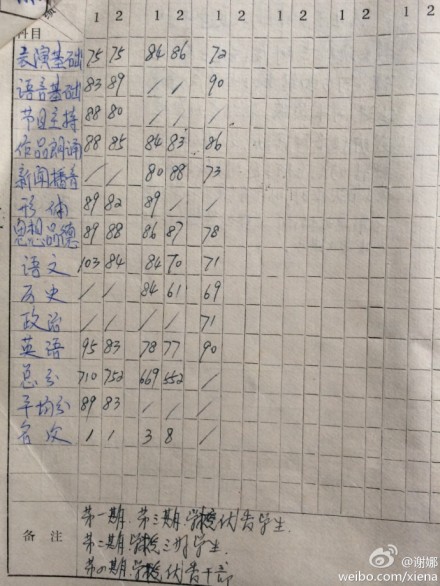 1 2 1 2 1 2 1 2 1 2 1 2
科目
表演基础 75 75 84 86 72
语音基础 83 89 / / 90
节目主持 88 80 / /
作品朗诵 88 85 84 83 86
新闻播音 / / 80 88 73
形体 89 82 89 / /
思想品德 89 88 86 87 78
语文 103 84 84 70 71
历史 / / 84 61 69
政治 / / / / 71
英语 95 83 78 77 90
总分 710 752 669 552 /
平均分 89 83 / / /
名次 1 1 3 8 /
备注
第一期.第三期.学校优秀学生.
第二期学校三好学生.
第四期学校优秀干部
@谢娜
weibo.com/xiena